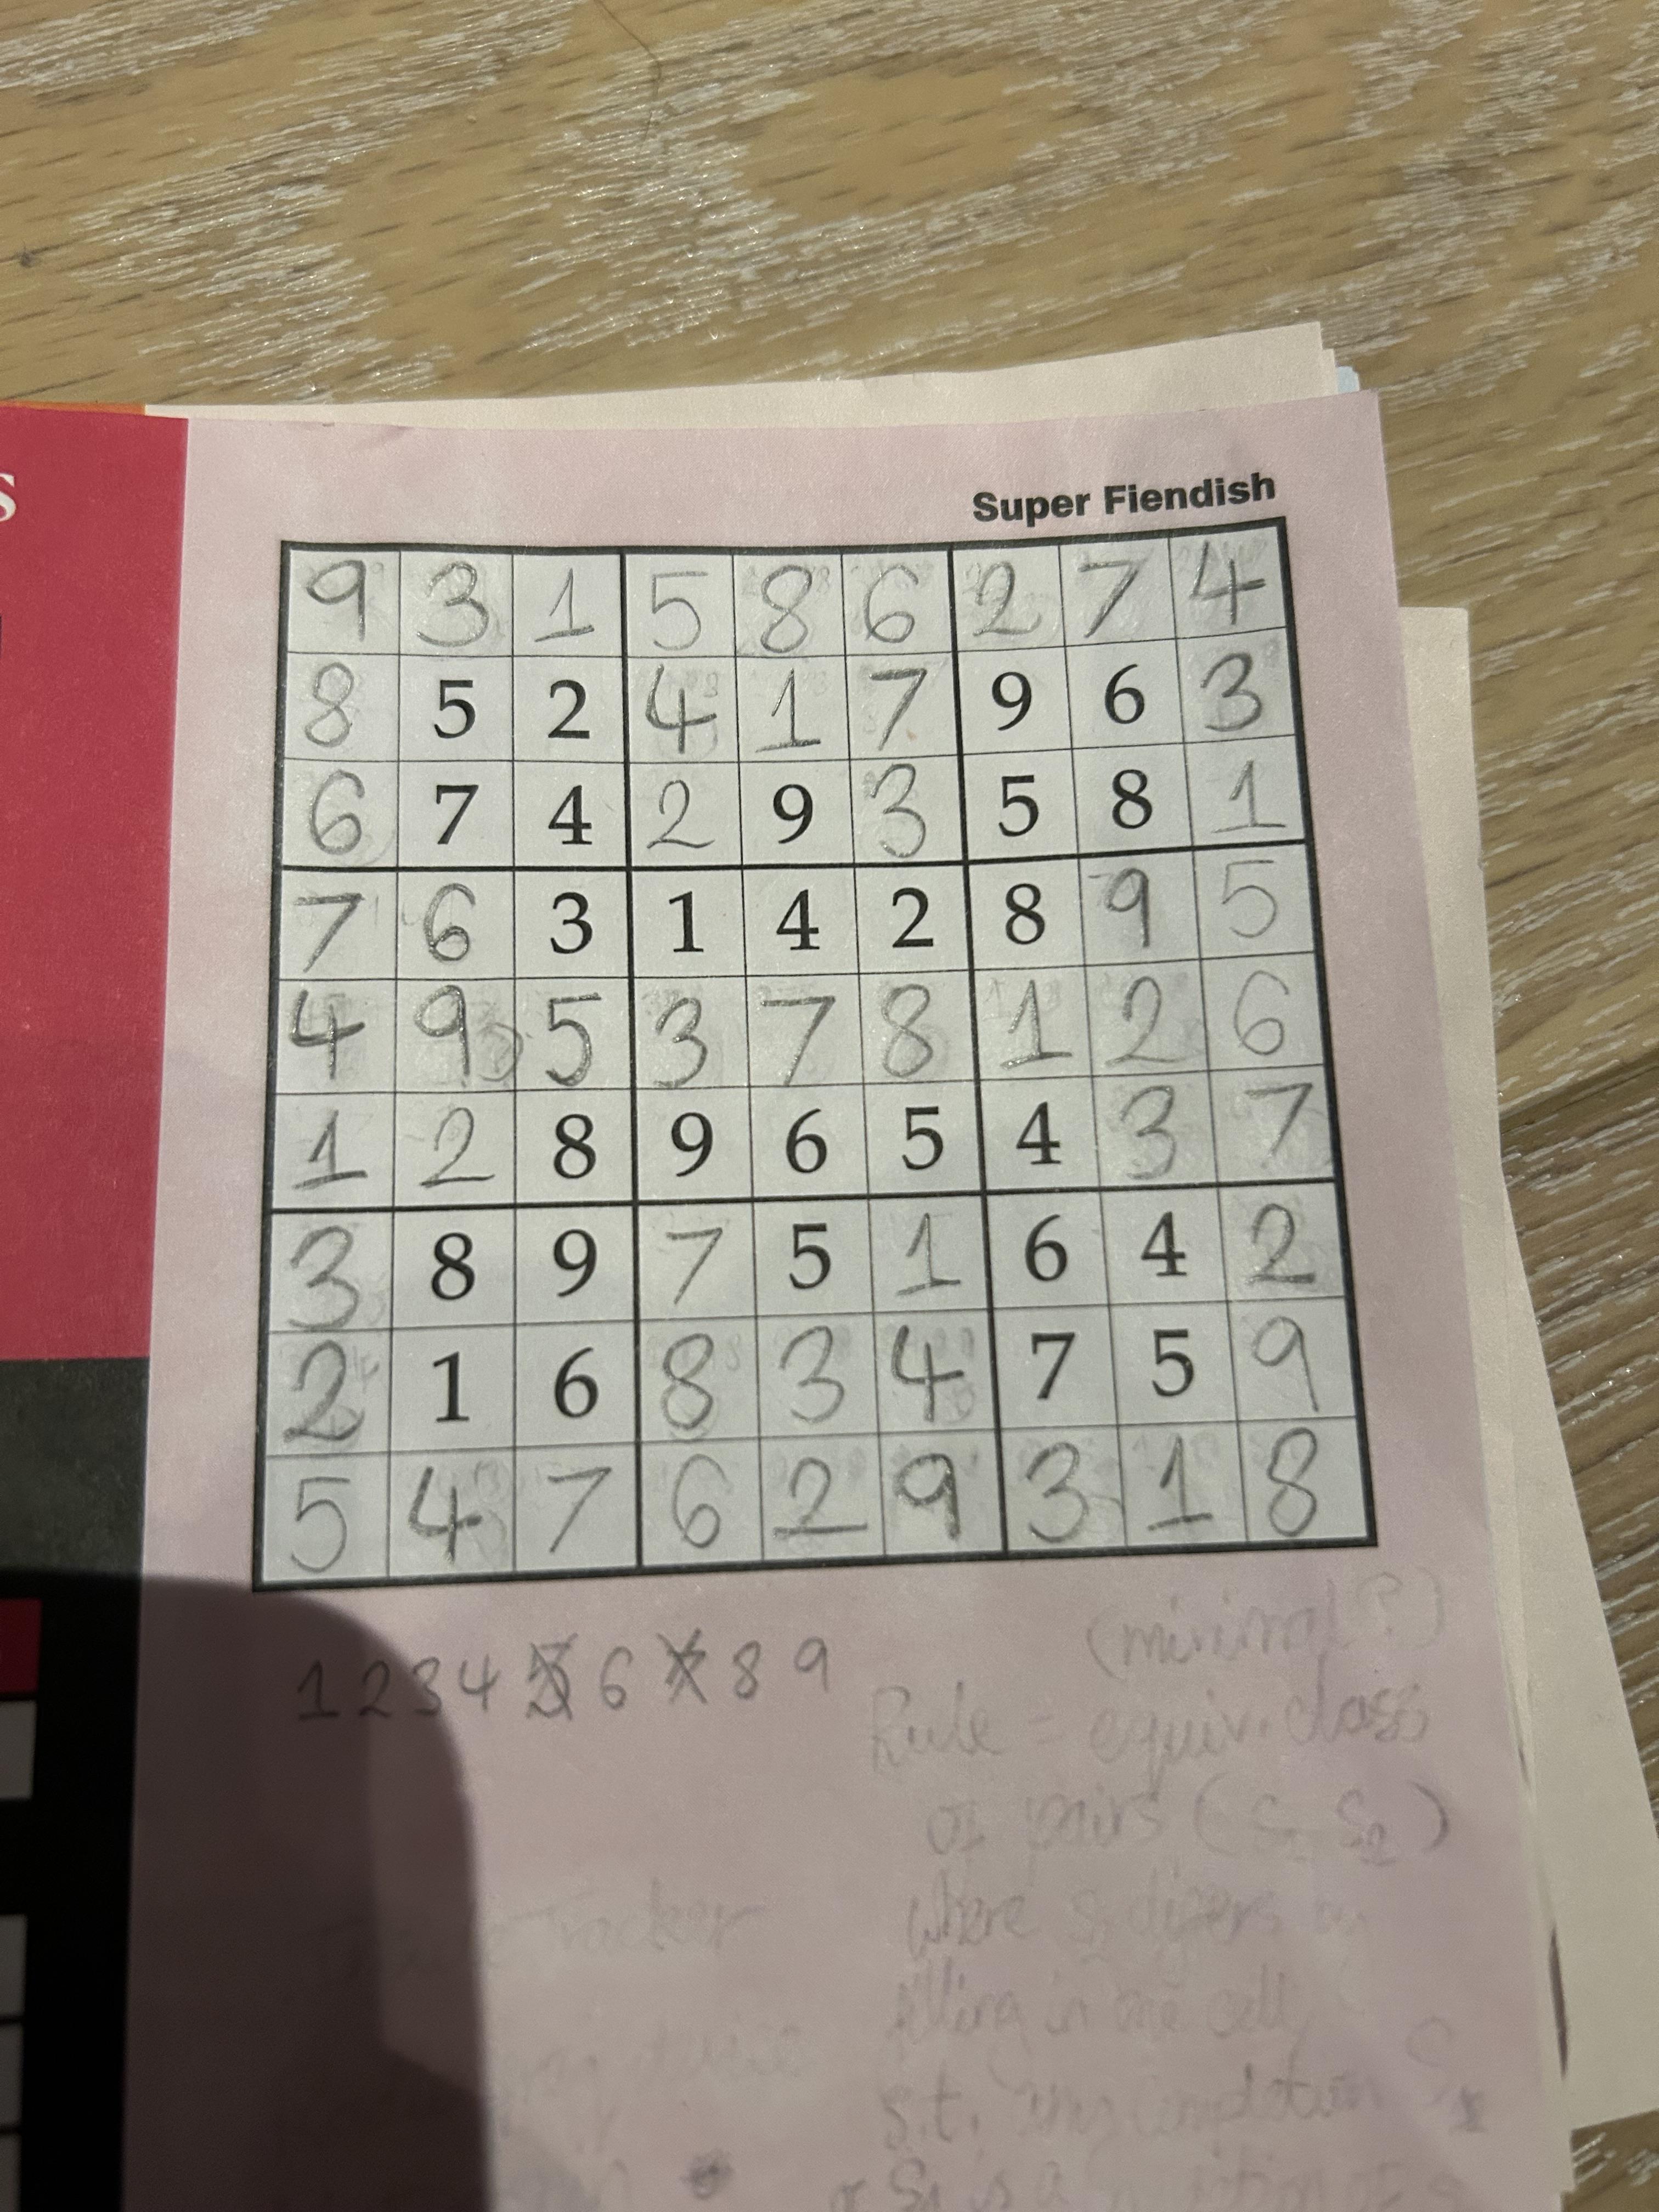 S
Super Fiendish
9 3 1 5 8 6 2 7 4
8 5 2 4 1 7 9 6 3
6 7 4 2 9 3 5 8 1
7 6 3 1 4 2 8 9 5
4 9 5 3 7 8 1 2 6
1 2 8 9 6 5 4 3 7
3 8 9 7 5 1 6 4 2
2 1 6 8 3 4 7 5 9
5 4 7 6 2 9 3 1 8
1 2 3 4 5 6 7 8 9
(minimal?)
Rule = equiv. class
of pairs (S₁ S₂)
Tracker
where differs
filling in one cell
s.t. completion
S₁ is a